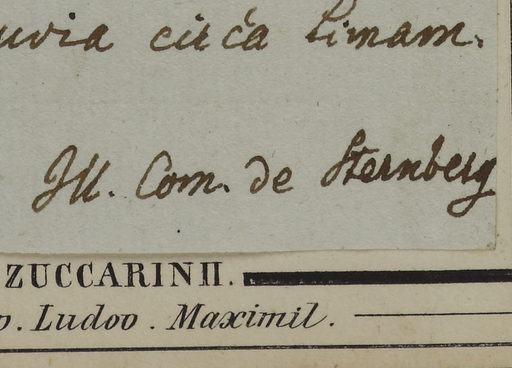 uvia circa Limam.
Ill. Com. de Sternberg
ZUCCARINII.
p. Ludov. Maximil.